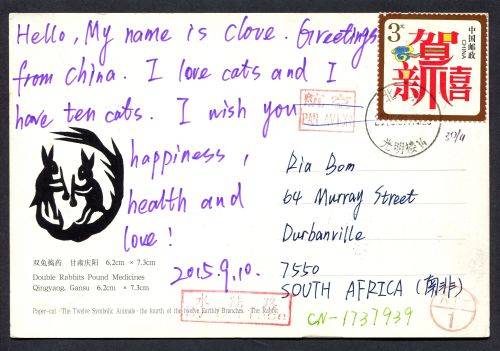 Hello, My name is Clove. Greetings
from China. I love cats and I
have ten cats. I wish you
happiness,
health and
love!
2015.9.10.
3元
中国邮政
CHINA
贺
新禧
航空
PAR AVION
北京
光明楼
39/4
Ria Bom
64 Murray Street
Durbanville
7550
SOUTH AFRICA (南非)
CN-1737939
双兔捣药 甘肃庆阳 6.2cm × 7.3cm
Double Rabbits Pound Medicines
Qingyang, Gansu 6.2cm × 7.3cm
水陆路
1
Paper-cut · The Twelve Symbolic Animals · the fourth of the twelve Earthly Branches · The Rabbit